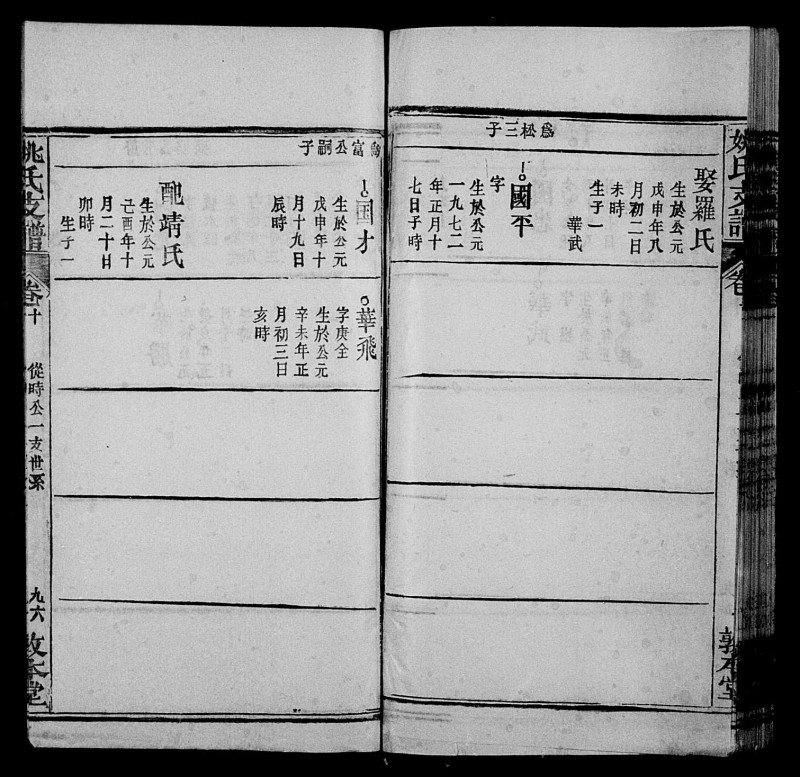 姚氏支譜
卷十
敦本堂
娶羅氏
生於公元
戊申年八
月初二日
未時
生子一
華武
為松三子
國平
字
生於公元
一九七二
年正月十
七日子時
為富公嗣子
国才
生於公元
戊申年十
月十九日
辰時
配靖氏
生於公元
己酉年十
月二十日
卯時
生子一
華飛
字庚全
生於公元
辛未年正
月初三日
亥時
姚氏支譜
卷十
從時公一支世系
九六
敦本堂